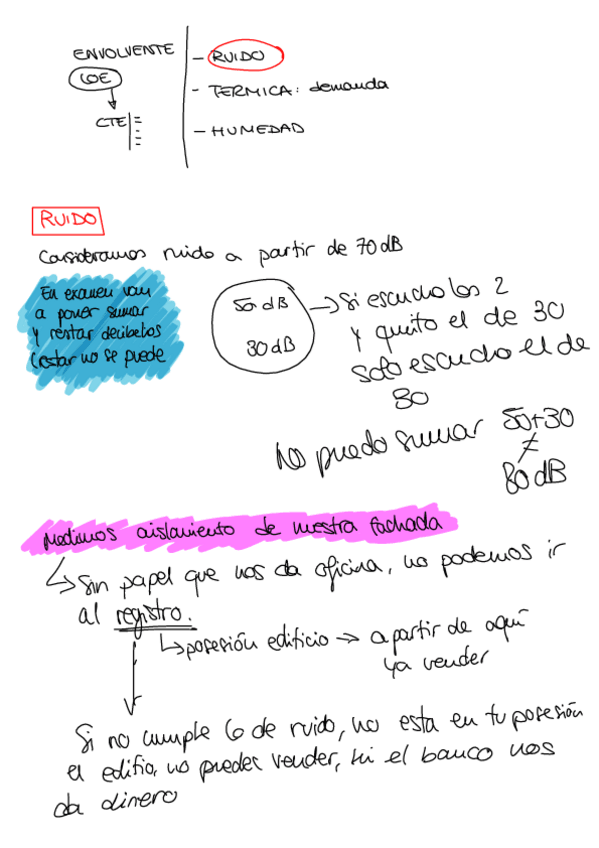 ENVOLVENTE
LOE
CTE
- RUIDO
- TERMICA: demanda
- HUMEDAD
RUIDO
Consideramos ruido a partir de 70 dB
En examen van
a poner sumar
y restar decibelios
(restar no se puede
50 dB
30 dB
Si escucho los 2
y quito el de 30
solo escucho el de
80
No puedo sumar 50+30
≠
80 dB
Medimos aislamiento de nuestra fachada
Sin papel que nos da oficina, no podemos ir
al registro.
posesión edificio → a partir de aquí
ya vender
Si no cumple lo de ruido, no esta en tu posesión
el edifio, no puedes vender, ni el banco nos
da dinero